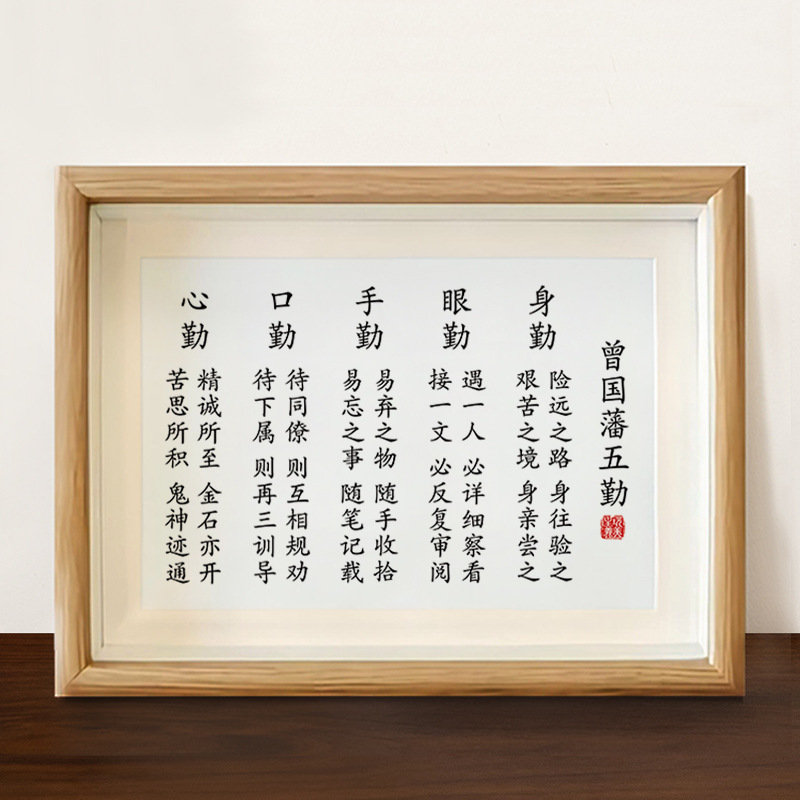 曾国藩五勤
身勤
险远之路 身往验之
艰苦之境 身亲尝之
眼勤
遇一人 必详细察看
接一文 必反复审阅
手勤
易弃之物 随手收拾
易忘之事 随笔记载
口勤
待同僚 则互相规劝
待下属 则再三训导
心勤
精诚所至 金石亦开
苦思所积 鬼神迹通